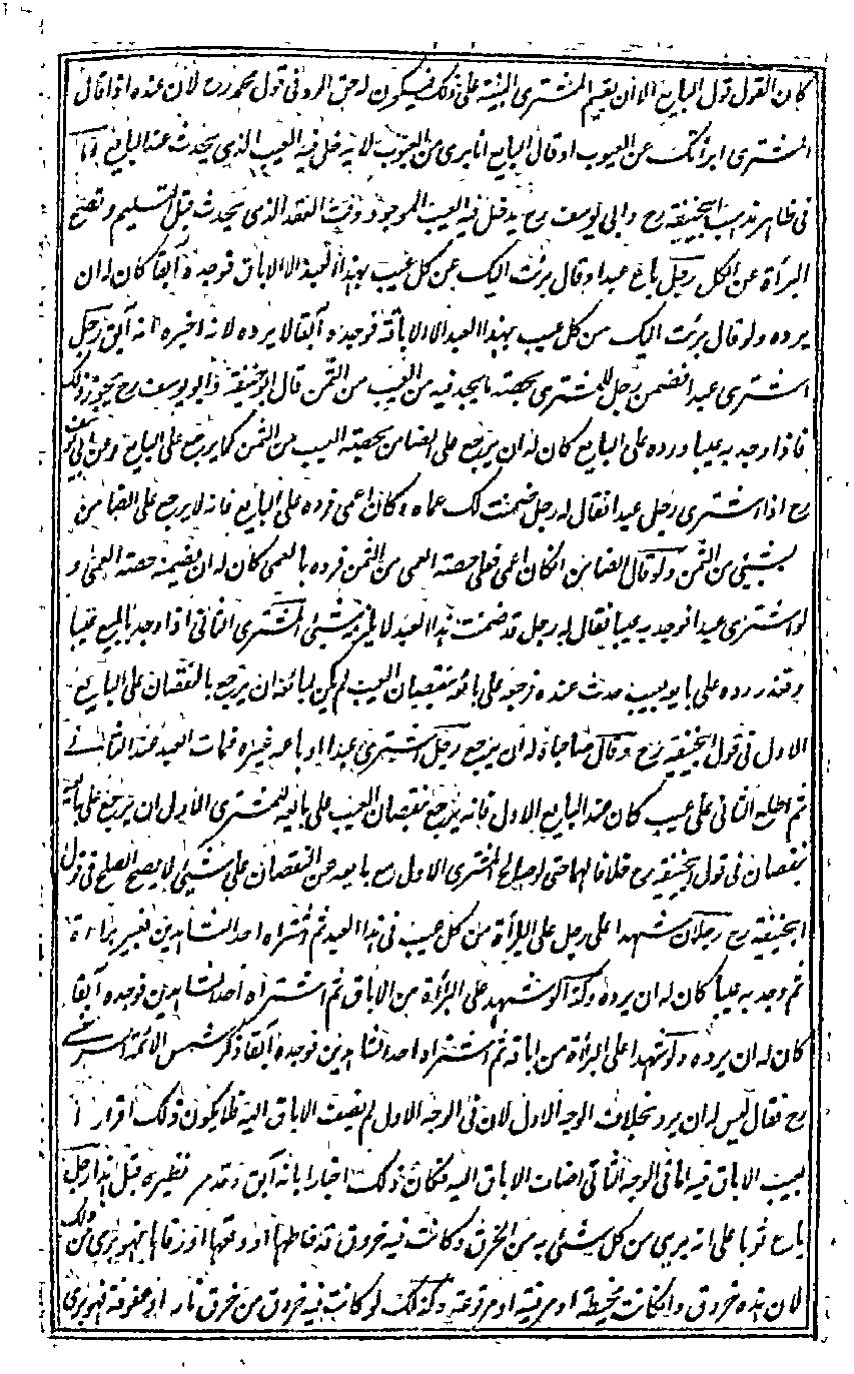 كان القول قول البايع الا ان يقيم المشترى البينة على ذلك فيكون له حق الرد فى قول محمد رح لان عنده اذا قال
المشترى ابرأتك عن العيوب او قال البايع انا برى من العيوب لا يدخل فيه العيب الذى يحدث عند البايع اما
فى ظاهر مذهب ابيحنيفة رح وابى يوسف رح يدخل فيه العيب الموجود وقت العقد الذى يحدث قبل التسليم وتصح
البرأة عن الكل رجل باع عبدا وقال برئت اليك عن كل عيب بهذا العبد الا الاباق فوجده آبقا كان له ان
يرده ولو قال برئت اليك من كل عيب بهذا العبد الا اباقه فوجده آبقا لا يرده لانه اخبره انه آبق رجل
اشترى عبدا فضمن رجل للمشترى بحصته ما يجد فيه من العيب من الثمن قال ابو حنيفة وابو يوسف رح يجوز ذلك
فاذا وجد به عيبا ورده على البايع كان له ان يرجع على الضامن بحصته العيب من الثمن كما يرجع على البايع وعن ابى يوسف
رح اذا اشترى رجل عبدا فقال له رجل ضمنت لك عماه وكان اعمى فرده على البايع فانه لا يرجع على الضامن
بشيئ من الثمن ولو قال الضامن ان كان اعمى فعلى حصته العمى من الثمن فرده بالعمى كان له ان يضمنه حصته العمى و
لو اشترى عبدا فوجد به عيبا فقال له رجل قد ضمنت هذا العبد لا يلزمه شيئ المشترى الثانى اذا وجد بالمبيع عيبا
وتعذر رده على بايعه بعيب حدث عنده فرجع على بائعه بنقصان العيب لم يكن لبائعه ان يرجع بالنقصان على البايع
الاول فى قول ابيحنيفة رح وقال صاحباه له ان يرجع رجل اشترى عبدا وباعه غيره فمات العبد عند الثانى
ثم اطلع الثانى على عيب كان عند البايع الاول فانه يرجع بنقصان العيب على بايعه للمشترى الاول ان يرجع على بائعه
بنقصان فى قول ابيحنيفة رح خلافا لهما حتى لو صالح المشترى الاول مع بايعه عن النقصان على شيئ لا يصح الصلح فى قول
ابيحنيفة رح رجلان شهدا على رجل على البرأة من كل عيب فى هذا العبد ثم اشتراه احد الشاهدين بغير براءة
ثم وجد به عيبا كان له ان يرده وكذا لو شهد على البرأة من الاباق ثم اشتراه احد الشاهدين فوجده آبقا
كان له ان يرده ولو شهدا على البرأة من اباقه ثم اشتراه احد الشاهدين فوجده آبقا ذكر شمس الائمة السرخسى
رح فقال ليس له ان يرد بخلاف الوجه الاول لان فى الوجه الاول لم يضف الاباق اليه فلا يكون ذلك اقرارا
بعيب الاباق فيه اما فى الوجه الثانى اضاف الاباق اليه فكان ذلك اخبارا بانه آبق وقد مر نظيره قبل هذا رجل
باع ثوبا على انه برى من كل شيئ به من الخرق وكانت فيه خروق قد خاطها او رقعها او رفاها فهو برى من ذلك
لان هذه خروق وان كانت مخيطة او مرفية او مرقوعة وكذلك لو كانت فيه خروق من خرق نار او عفونة فهو برى